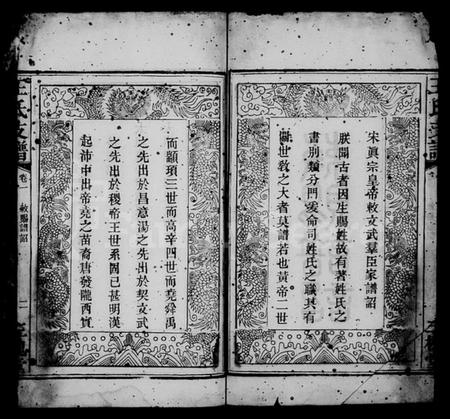 宋眞宗皇帝敕文武羣臣家譜詔
朕聞古者因生賜姓故有著姓氏之
書別類分門爰命司姓氏之職其有
關世敎之大者莫譜若也黃帝二世
而顓頊三世而高辛四世而堯舜禹
之先出於昌意湯之先出於契文武
之先出於稷帝王世系固已甚明漢
起沛中出帝堯之苗裔唐發隴西實
王氏支譜
卷一
敕賜譜詔